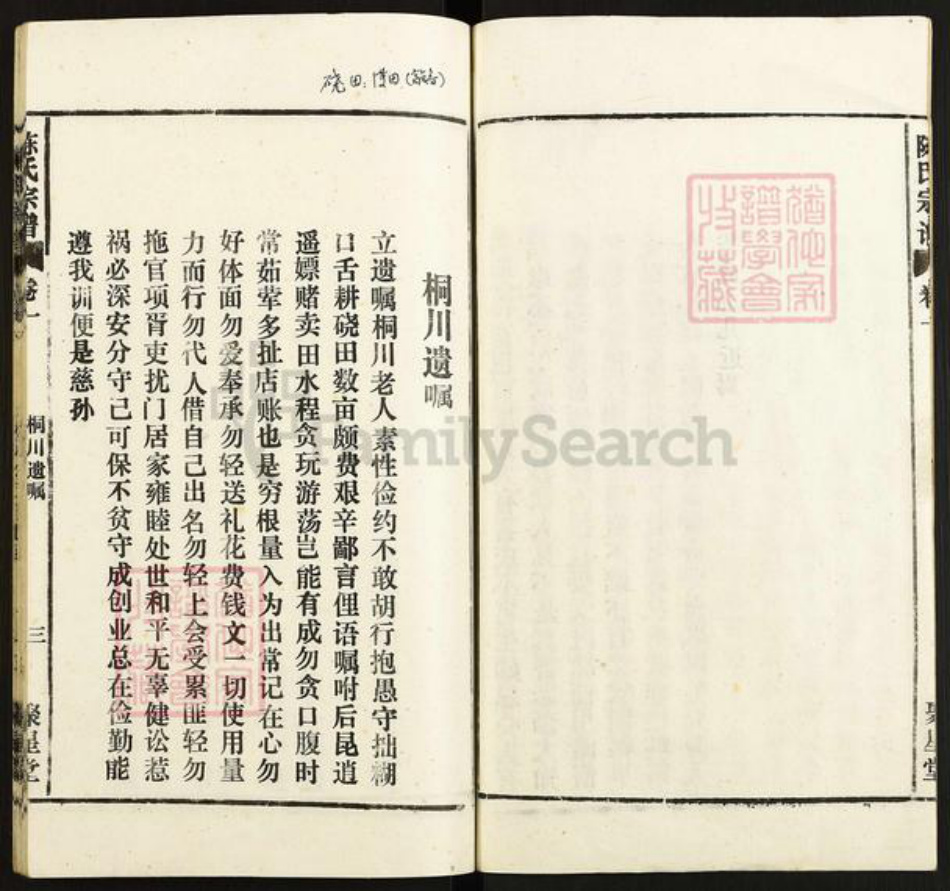 桐川遗嘱
立遗嘱桐川老人素性俭约不敢胡行抱愚守拙糊
口舌耕硗田数亩颇费艰辛鄙言俚语嘱咐后昆逍
遥嫖赌卖田水程贪玩游荡岂能有成勿贪口腹时
常茹荤多扯店账也是穷根量入为出常记在心勿
好体面勿爱奉承勿轻送礼花费钱文一切使用量
力而行勿代人借自己出名勿轻上会受累匪轻勿
拖官项胥吏扰门居家雍睦处世和平无辜健讼惹
祸必深安分守己可保不贫守成创业总在俭勤能
遵我训便是慈孙
陈氏宗谱
卷一
桐川遗嘱
三
聚星堂
硗田
FamilySearch